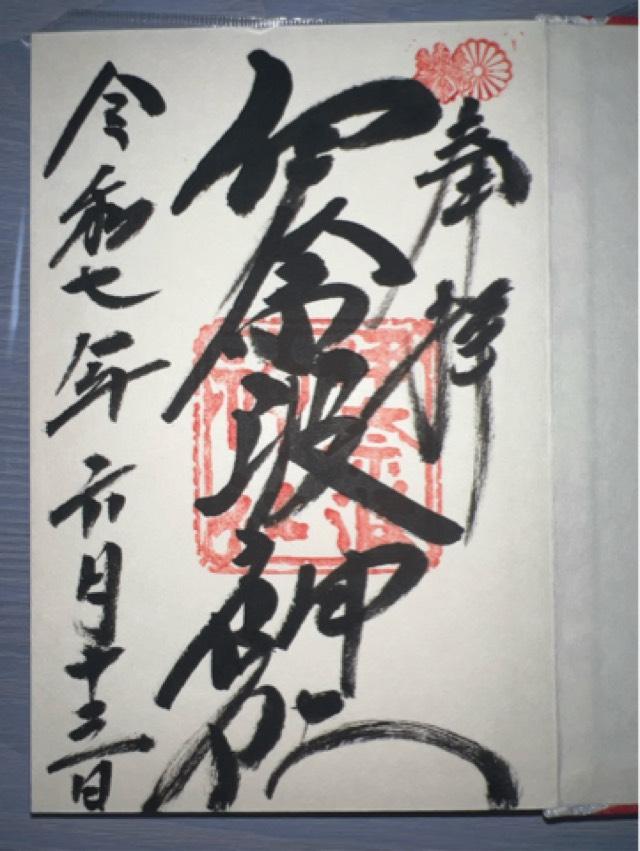 奉拝
伊奈波神社
令和七年六月十三日